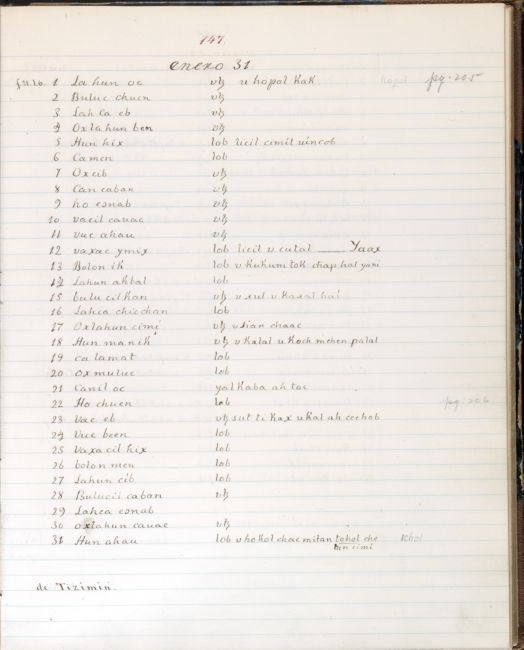 147.
enero 31
1 Lahun oc utz u hopol kak hopol pg. 205
2 Buluc chuen utz
3 Lahca eb utz
4 Oxlahun ben utz
5 Hun hix lob licil cimil uincob
6 Ca men lob
7 Ox cib utz
8 Can caban utz
9 ho esnab utz
10 vacil cauac utz
11 vuc ahau utz
12 vaxac ymix lob licil u cutal ___ Yaax
13 Bolon ik lob u kukum tok chaphal yani
14 Lahun akbal lob
15 bulucil kan utz u sul u kaxal hai
16 Lahca chicchan lob
17 Oxlahun cimi utz u sian chaac
18 Hun manik utz u kalal u koch mehen palal
19 ca lamat lob
20 Ox muluc lob
21 Canil oc yal kaba ah toc
22 Ho chuen lob pg. 206
23 Vac eb utz sut ti kax u kal ah ceehob
24 Vuc been lob
25 Vaxacil hix lob
26 bolon men lob
27 Lahun cib lob
28 Bulucil caban utz
29 Lahca esnab
30 oxlahun cauac utz
31 Hun ahau lob u hokol chac mitan tohol che
ten cimi
de Tizimin.